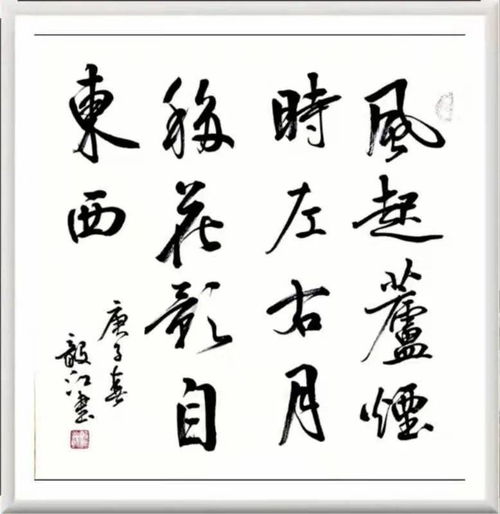 風起蘆煙
時左右月
移花影自
東西
庚子春
毅江书